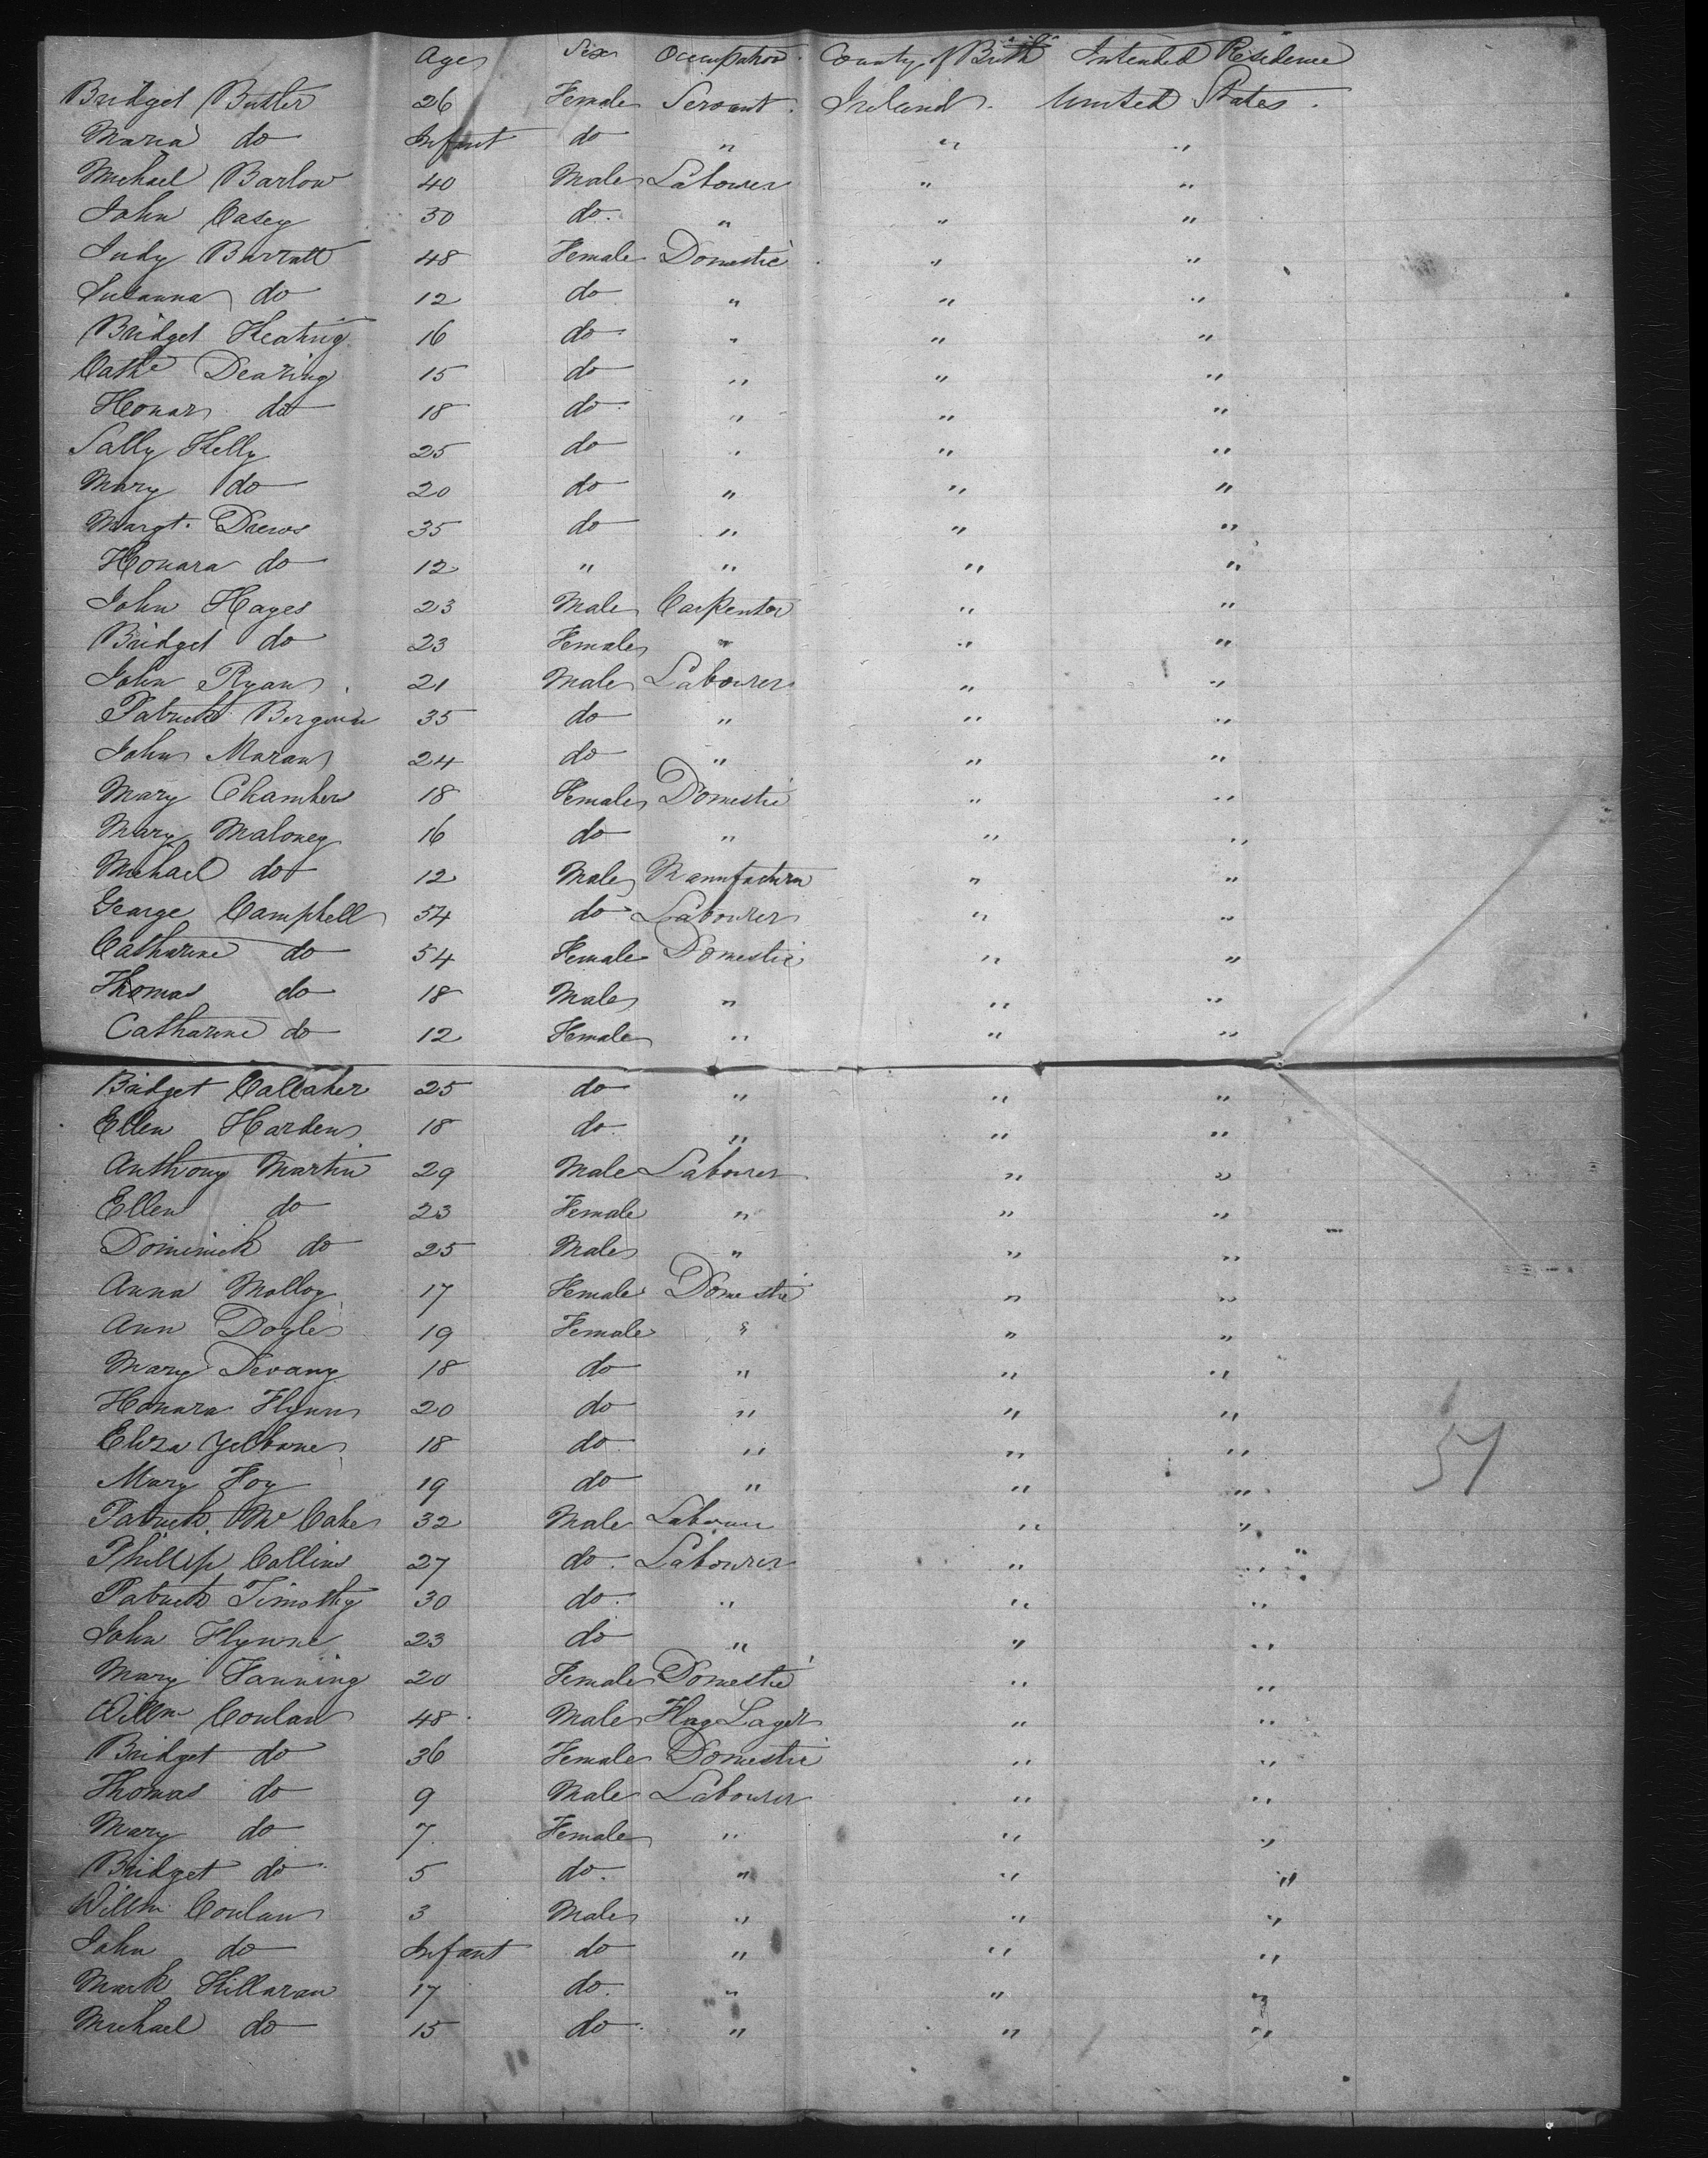 Age Sex Occupation County of Birth Intended Residence
Bridget Butler 26 Female Servant. Ireland. United States.
Maria do Infant do " " "
Michael Barlow 40 Male Labourer " "
John Casey 30 do. " " "
Judy Barratt 48 Female Domestic " "
Susanna do 12 do " " "
Bridget Keating 16 do " " "
Cathe Dearing 15 do " " "
Honar do 18 do " " "
Sally Kelly 25 do " " "
Mary do 20 do " " "
Margt. Drews 35 do " " "
Honara do 12 " " " "
John Hayes 23 Male Carpenter " "
Bridget do 23 Female " " "
John Ryan 21 Male Labourer " "
Patrick Bergin 35 do " " "
John Moran 24 do " " "
Mary Chambers 18 Female Domestic " "
Mary Maloney 16 do " " "
Michael do 12 Male Manufacturer " "
George Campbell 54 do Labourer " "
Catharine do 54 Female Domestic " "
Thomas do 18 Male " " "
Catharine do 12 Female " " "
Bridget Callaher 25 do " " "
Ellen Harden 18 do " " "
Anthony Martin 29 Male Labourer " "
Ellen do 23 Female " " "
Dominick do 25 Male " " "
Anna Molloy 17 Female Domestic " "
Ann Doyle 19 Female " " "
Mary Devany 18 do " " "
Honara Flynn 20 do " " "
Eliza 18 do " " "
Mary Foy 19 do " " " 51
Patrick Mc Cabe 32 Male Labourer " "
Phillip Collins 27 do. Labourer " "
Patrick Timothy 30 do. " " "
John Flynne 23 do " " "
Mary Fanning 20 Female Domestic " "
Willm Conlan 48 Male Flag Lager " "
Bridget do 36 Female Domestic " "
Thomas do 9 Male Labourer " "
Mary do 7 Female " " "
Bridget do 5 do. " " "
Willm Conlan 3 Male " " "
John do Infant do " " "
Mark Killaran 17 do. " " "
Michael do 15 do " " "